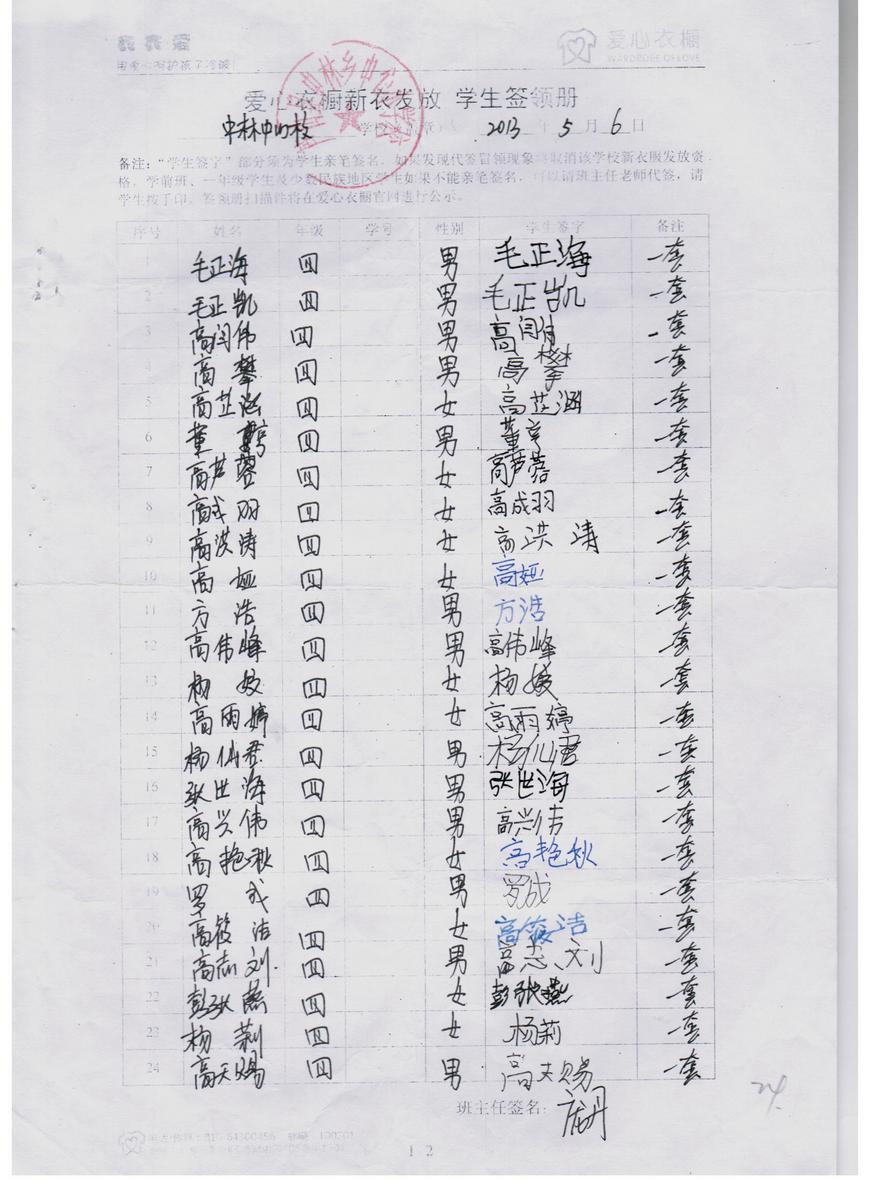 爱心衣橱
WARDROBE OF LOVE
爱心衣橱新衣发放 学生签领册
中林中心校 学校（盖章） 2013 年 5 月 6 日
备注：“学生签字”部分须为学生亲笔签名，如果发现代签冒领现象将取消该学校新衣服发放资
格，学前班、一年级学生及少数民族地区学生如果不能亲笔签名，可以请班主任老师代签，请
学生按手印。签领册扫描件将在爱心衣橱官网进行公示。
序号 姓名 年级 学号 性别 学生签字 备注
1 毛正海 四 男 毛正海 一套
2 毛正凯 四 男 毛正凯 一套
3 高闰伟 四 男 高闰 一套
4 高攀 四 男 高攀 一套
5 高芷涵 四 女 高芷涵 一套
6 董亨 四 男 董亨 一套
7 高芦蓉 四 女 高芦蓉 一套
8 高成羽 四 女 高成羽 一套
9 高洪涛 四 女 高洪涛 一套
10 高娅 四 女 高娅 一套
11 方浩 四 男 方浩 一套
12 高伟峰 四 男 高伟峰 一套
13 杨 四 女 杨 一套
14 高雨婷 四 女 高雨婷 一套
15 杨仙君 四 男 杨仙君 一套
16 张世海 四 男 张世海 一套
17 高兴伟 四 男 高兴伟 一套
18 高艳秋 四 女 高艳秋 一套
19 罗成 四 男 罗成 一套
20 高筱洁 四 女 高筱洁 一套
21 高志刘 四 男 高志刘 一套
22 彭张燕 四 女 彭张燕 一套
23 杨莉 四 女 杨莉 一套
24 高天赐 四 男 高天赐 一套
班主任签名：
24
12